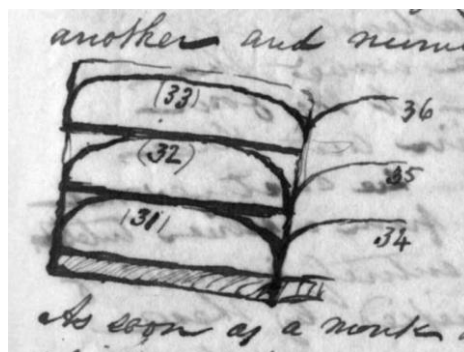 another and
(33) 36
(32) 35
(31) 34
As soon as a monk